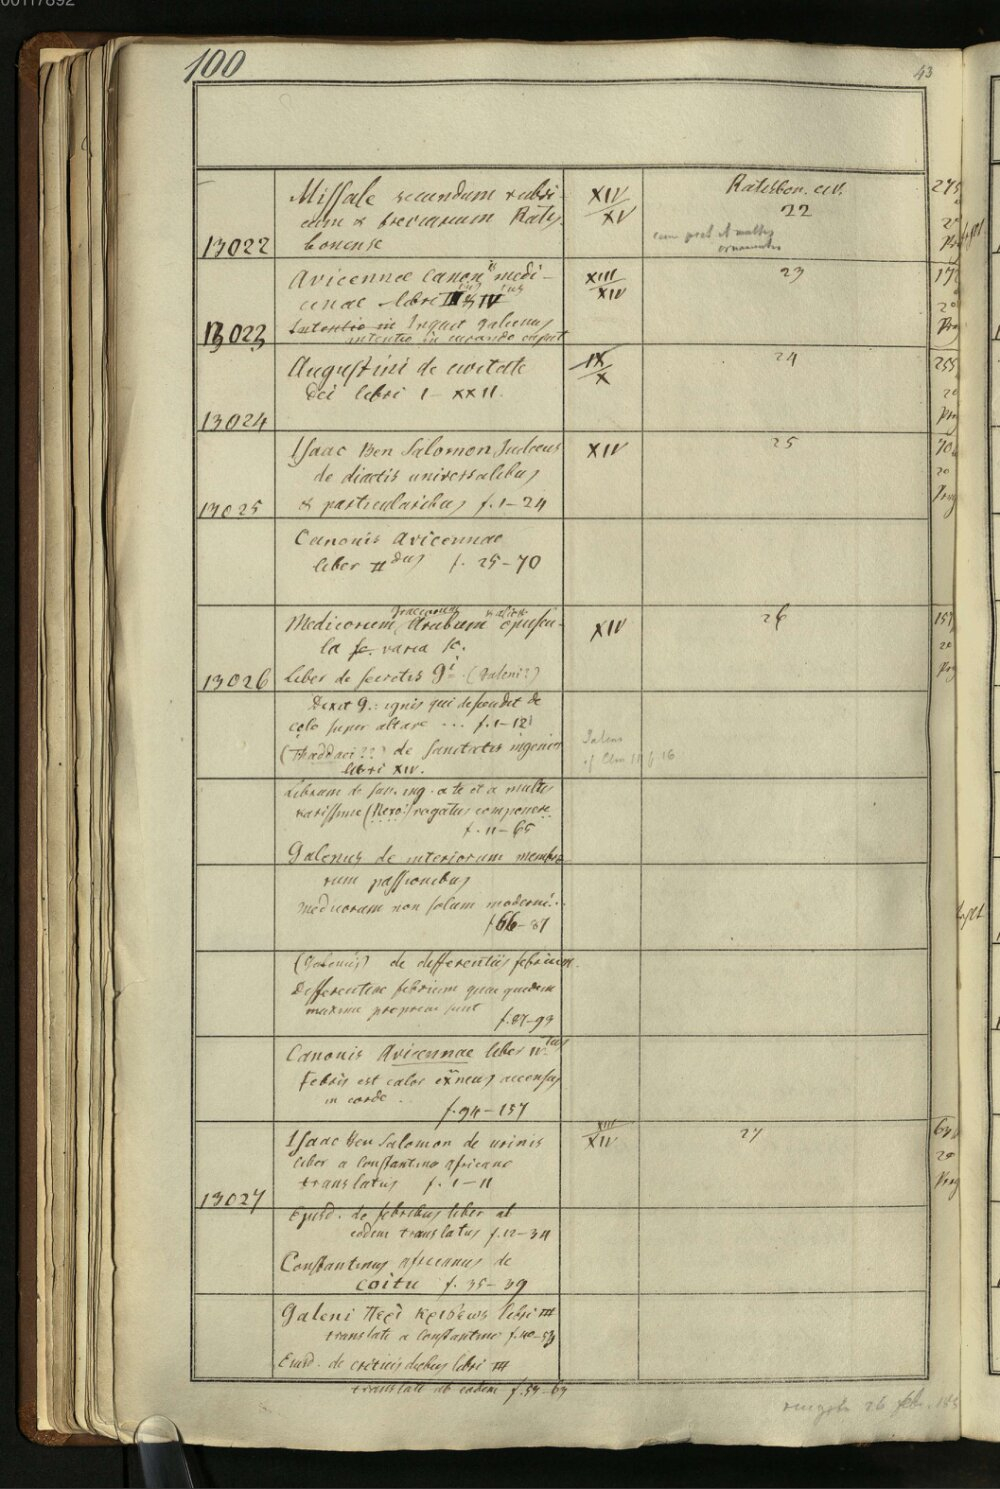 100
43
13022
Missale secundum rubri-
cum & breviarium Ratis
bonense
XIV
XV
Ratisbon. civ.
22
cum
ornamentis
13023
Avicennae Canonis medi-
cinae libri III & IV
Intentio in Inquit galienus
intentio in curando caput
XIII
XIV
23
13024
Augustini de civitate
Dei libri I – XXII.
IX
X
24
13025
Isaac Ben Salomon Judaeus
de diaetis universalibus
& particularibus f. 1–24
XIV
25
Canonis Avicennae
liber IIdus f. 25–70
13026
Medicorum graecorum Arabum opuscu-
la sc. varia sc.
Liber de secretis gi. (Galeni?)
XIV
26
Dixit g.: ignis qui descendit de
celo super altare ... f. 1–12
(Thaddaei??) de sanitatis ingenio
libri XIV.
Librum de san. ing. a te et a multis
karissime (Nero!) rogatus componere
f. 11–65
Galenus de interiorum membro
rum passionibus
medicorum non solum moderni..
f 66–87
(galenus) de differentiis febrium.
Differentiae febrium quae quedem
maxime propriae sunt
f. 87–93
Canonis Avicennae liber IV.tus
Febris est calor exneus accensus
in corde.
f. 94–157
13027
Isaac Ben Salomon de urinis
liber a Constantino africano
translatus f. 1–11
XIII
XIV
27
Ejusd. de febribus liber ab
eodem translatus f. 12–34
Constantinus africanus de
coitu f. 35–39
Galeni Περὶ κρισέως libri III
translati a Constantino f. 40–53
Eiusd. de criticis diebus libri III
translati ab eodem f. 54–64
26 Feb.